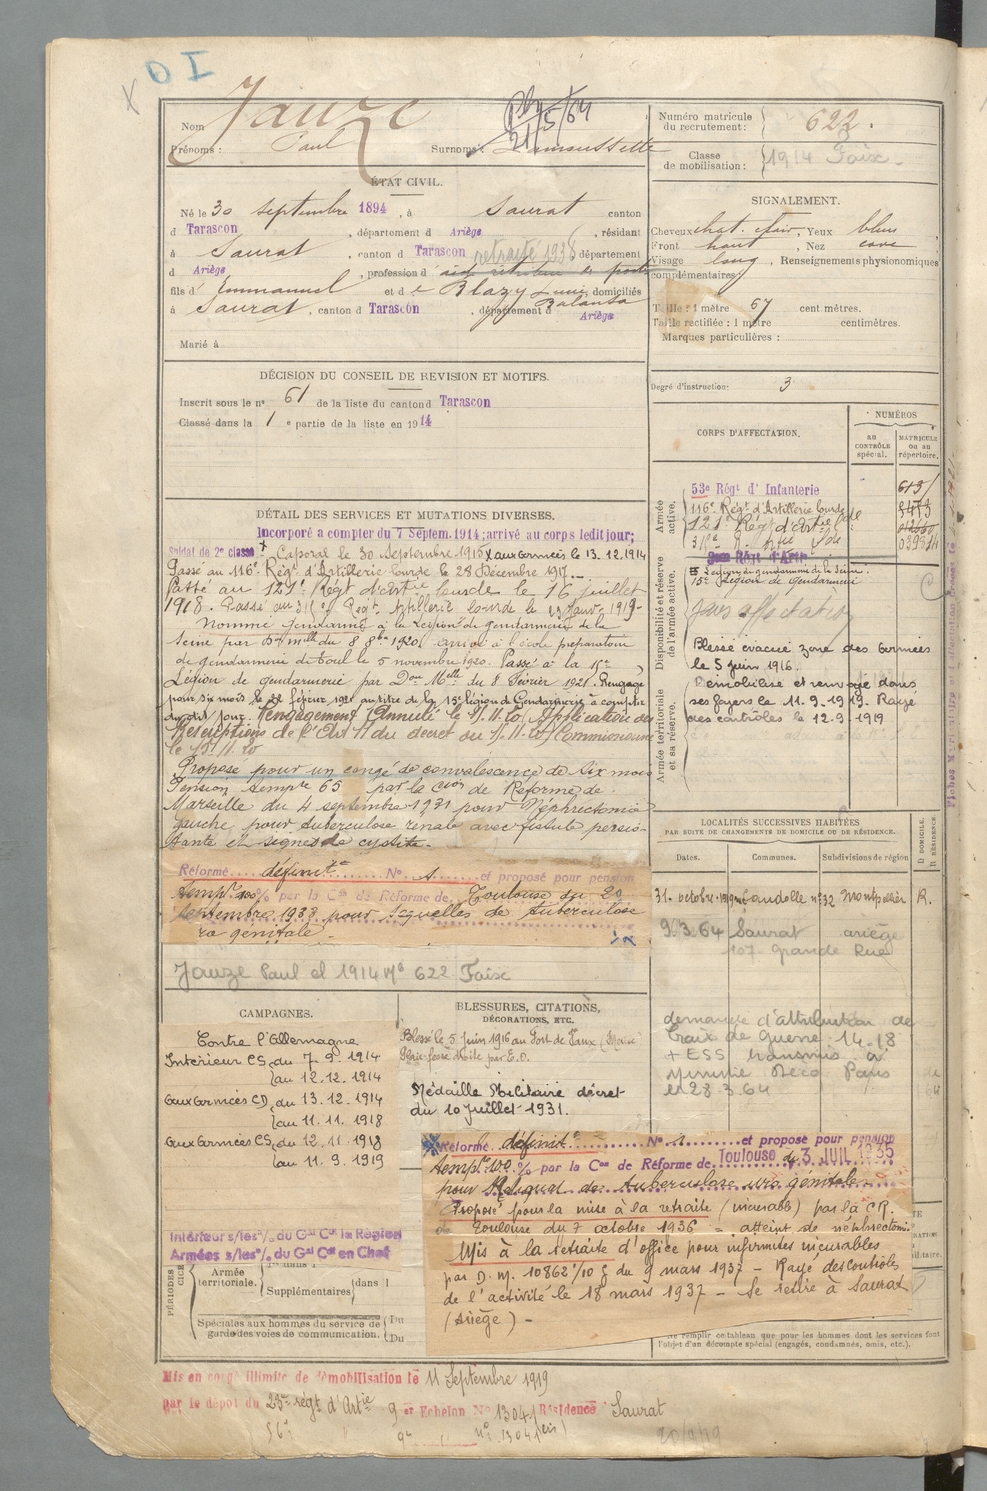 D I
Nom Jauze
Prénoms : Paul Surnoms :
21/5/64
Numéro matricule du recrutement : 622.
Classe de mobilisation : 1914 Foix.
ÉTAT CIVIL.
Né le 30 septembre 1894, à Saurat canton
d Tarascon, département d Ariège, résidant
à Saurat, canton d Tarascon retraité 1936 département
d Ariège, profession d
fils d' Emmanuel et d e Blazy domiciliés
à Saurat, canton d Tarascon, département d Ariège
Marié à
SIGNALEMENT.
Cheveux chat. clair, Yeux bleus
Front haut, Nez cave
Visage long, Renseignements physionomiques
complémentaires :
Taille : 1 mètre 67 centimètres.
Taille rectifiée : 1 mètre centimètres.
Marques particulières :
Degré d'instruction : 3
DÉCISION DU CONSEIL DE REVISION ET MOTIFS.
Inscrit sous le n° 61 de la liste du canton d Tarascon
Classé dans la 1 e partie de la liste en 1914
CORPS D'AFFECTATION.
NUMÉROS
AU CONTRÔLE spécial.
MATRICULE ou au répertoire.
Armée active.
53e Régt d'Infanterie
116e Régt d'Artillerie lourde
121e Régt d'Artie lde
Disponibilité et réserve de l'armée active.
Légion de gendarmerie de la Seine.
15e Légion de gendarmerie
Sans affectation
Armée territoriale et sa réserve.
Blessé évacué zone des Armées
le 5 juin 1916.
Démobilisé et renvoyé dans
ses foyers le 11.9.1919. Rayé
des contrôles le 12.9.1919
DÉTAIL DES SERVICES ET MUTATIONS DIVERSES.
Incorporé à compter du 7 Septem. 1914; arrivé au corps ledit jour;
Soldat de 2e classe Caporal le 30 Septembre 1915 X aux armées le 13.12.1914
Passé au 116e Régt d'Artillerie lourde le 28 Décembre 1917.
Passé au 121e Régt d'Artie lourde le 16 juillet
1918. Passé au Régt Artillerie lourde le Janv. 1919-
Nommé Gendarme à la Légion de gendarmerie de la
Seine par Don Mlle du 8 8bre 1920, arrivé à l'école préparatoire
de gendarmerie de Toul le 5 novembre 1920. Passé à la 15e
Légion de gendarmerie par Don Mlle du 8 Février 1921. Rengagé
pour six mois le 22 février 1921 au titre de la 15e légion de Gendarmerie à compter
du dit jour. Rengagement (Annulé le Application des
Prescriptions de l'Art 11 du décret du Commissionné
le
Proposé pour un congé de convalescence de six mois
Pension tempre 65 par la Cion de Réforme de
Marseille du 4 septembre 1931 pour Néphrectomie
gauche, pour tuberculose rénale avec fistule persis-
tante et signes de cystite.
Réformé définitt N° 1 et proposé pour pension
tempre 100% par la Con de Réforme de Toulouse du 20
septembre 1933 pour séquelles de tuberculose
ro génitale
Jauze Paul cl 1914 Mle 622 Foix
LOCALITÉS SUCCESSIVES HABITÉES
PAR SUITE DE CHANGEMENTS DE DOMICILE OU DE RÉSIDENCE.
Dates. Communes. Subdivisions de région
D DOMICILE. R RÉSIDENCE
31. octobre 1919 n° 32 Montpellier R.
9.3.64 Saurat ariège
107. Grande Rue
demande d'attribution de
Croix de Guerre 14.18
+ ESS transmis à
Paris
le 23.3.64
CAMPAGNES.
Contre l'Allemagne
Intérieur CS, du 7.9.1914
au 12.12.1914
Aux Armées CD, du 13.12.1914
au 11.11.1918
Aux Armées CS, du 12.11.1918
au 11.9.1919
Intérieur s/les o/ du Gal Ct la Région
Armées s/les o/ du Gal Cdt en Chef
BLESSURES, CITATIONS,
DÉCORATIONS, ETC.
Blessé le 5 juin 1916 au Fort de Vaux (Meuse
Plaie fesse droite par E.O.
Médaille Militaire décret
du 10 juillet 1931.
Réformé définitt N° 1 et proposé pour pension
tempre 100 % par la Con de Réforme de Toulouse du 3 JUIL 1935
pour Reliquat de tuberculose uro génitale
Proposé pour la mise à la retraite (incurable) par la C.R.
de Toulouse du 7 octobre 1936 = atteint de néphrectomie
Mis à la retraite d'office pour infirmités incurables
par D. M. 10862 1/10 G du 9 mars 1937 - Rayé des contrôles
de l'activité le 18 mars 1937 - Se retire à Saurat
(Ariège) -
PÉRIODES
Armée territoriale.
Supplémentaires dans l
Spéciales aux hommes du service de garde des voies de communication. Du Du
Ne remplir ce tableau que pour les hommes dont les services font l'objet d'un décompte spécial (engagés, condamnés, omis, etc.).
Mis en congé illimité de démobilisation le 11 Septembre 1919
par le dépôt du 23me régt d'Artie 9 er Echelon No 13041 Résidence Saurat